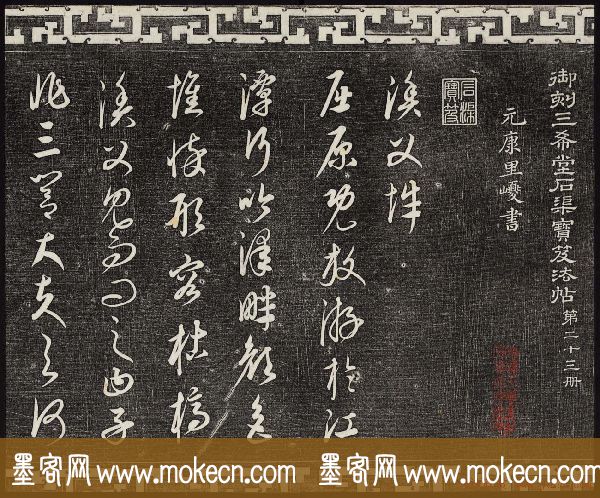 御刻三希堂石渠寶笈法帖 第二十三冊
元康里巎書
石渠寶笈
漁父辭
屈原既放游於江
潭行吟澤畔顏色
憔悴形容枯槁
漁父見而問之曰子
非三閭大夫与何
墨客网 www.mokecn.com 墨客网 www.mokecn.com